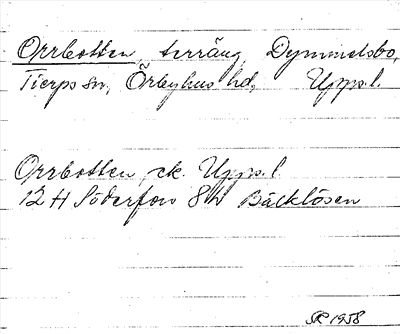 Orrbotten, terräng, Dymmelsbo,
Tierps sn, Örbyhus hd, Uppl.
Orrbotten, ek. Uppl.
12 H Söderfors 8 h Bäcklösen
SR 1958